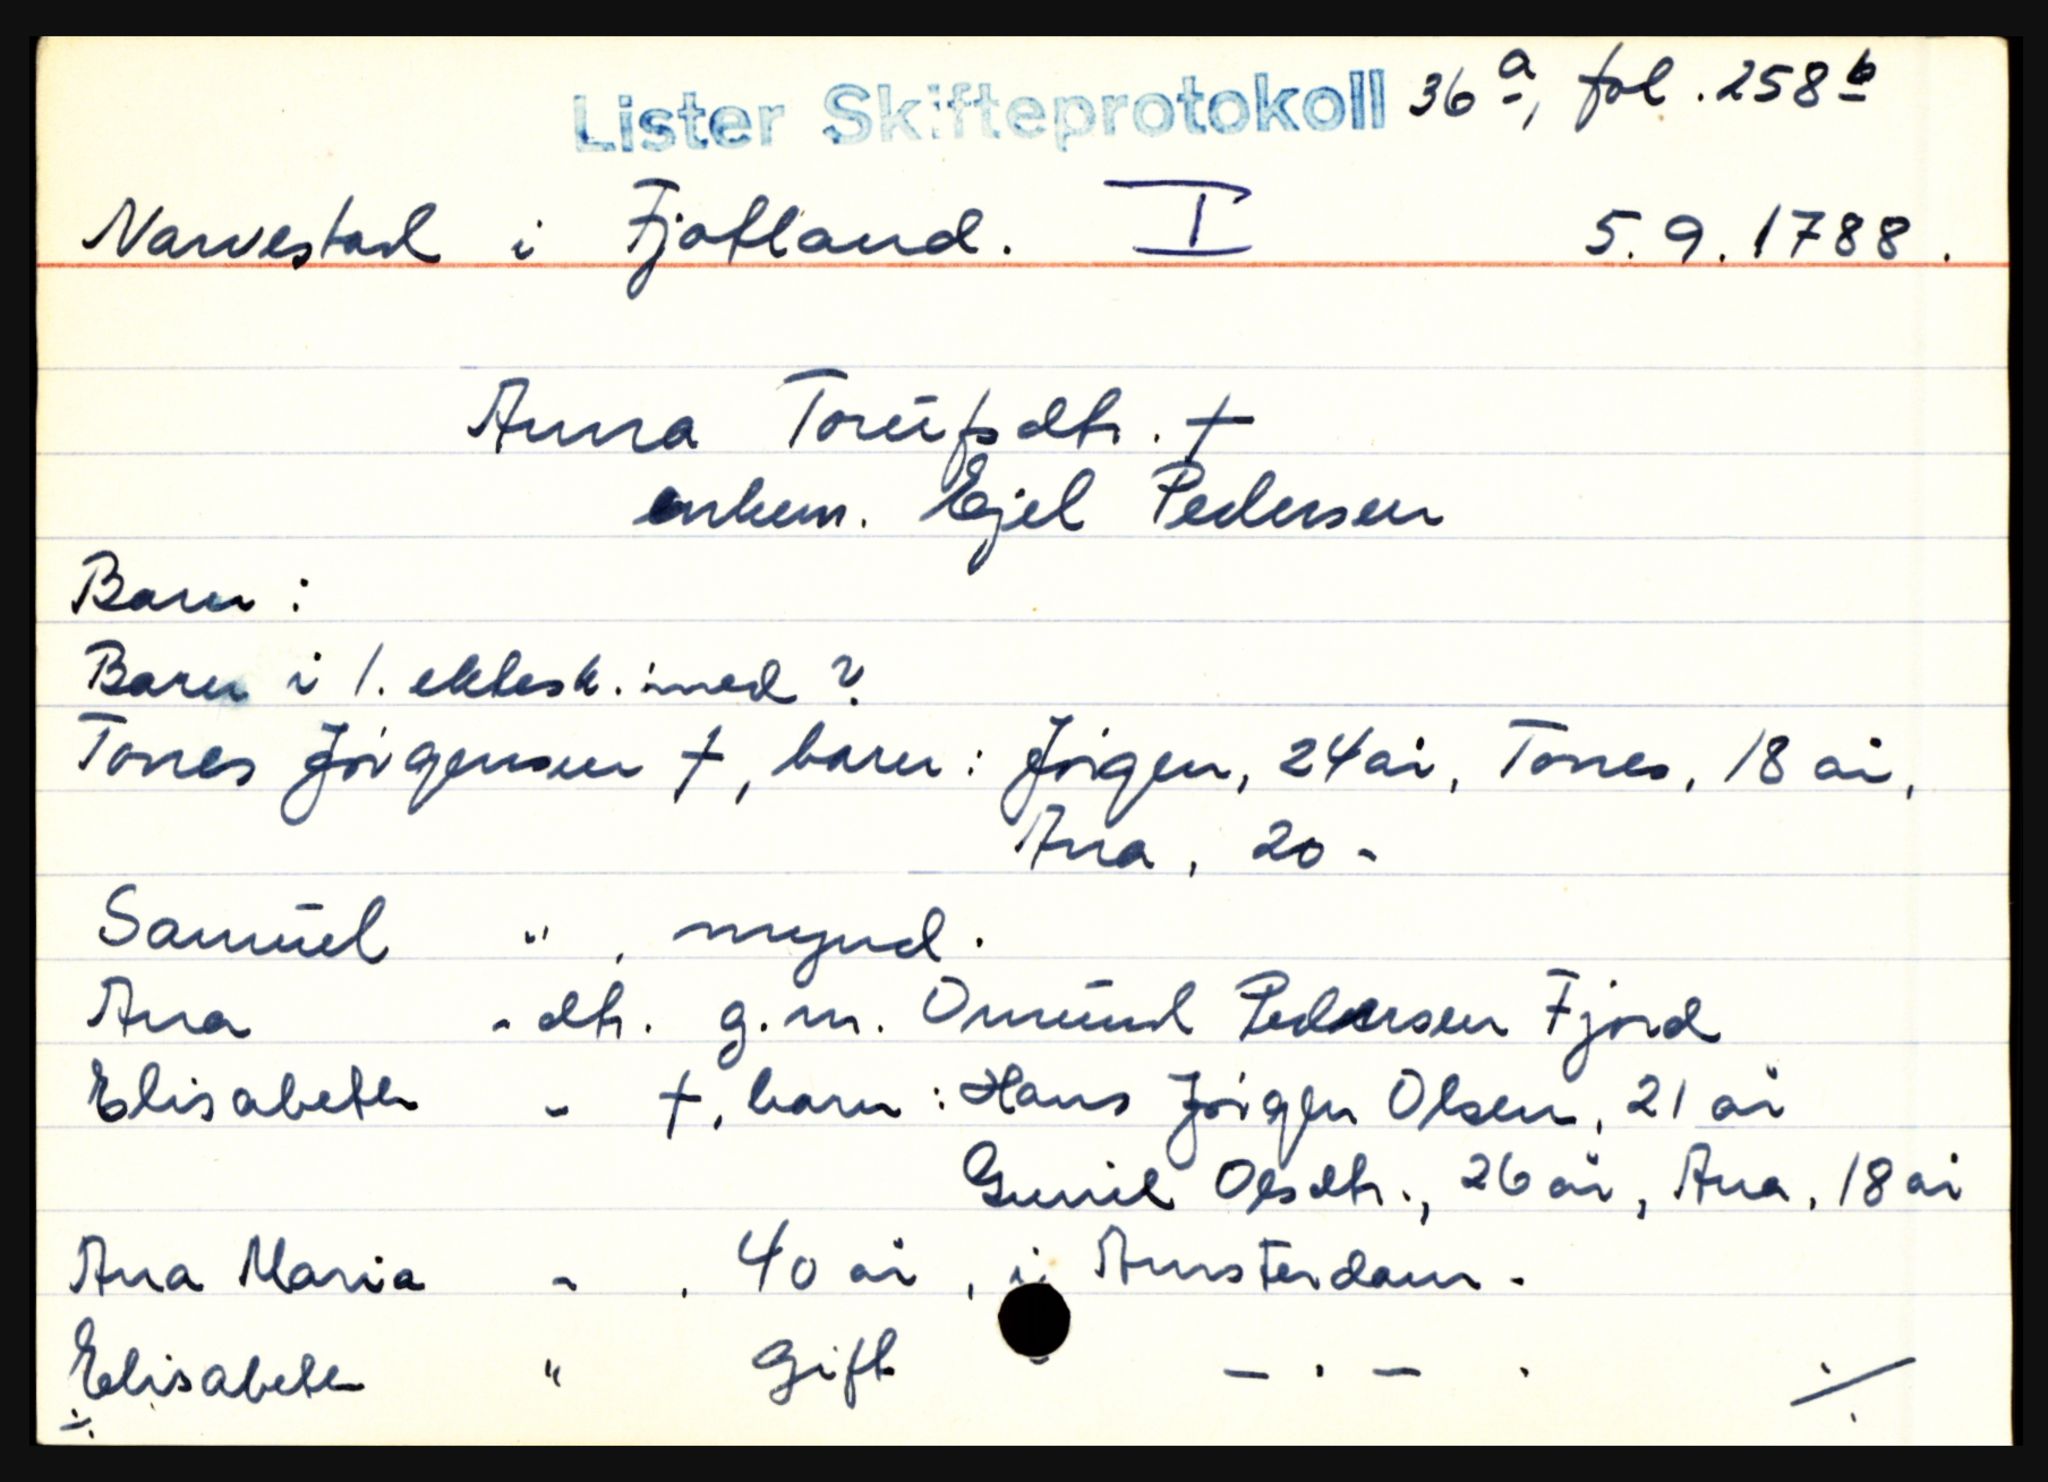 Lister Skifteprotokoll 36a, fol. 258b
Narvestad i Fjotland. I 5.9.1788.
Anna Torüfsdtr. †
enkem. Ejel Pedersen
Barn:
Barn i 1. ektesk. med ?
Tones Jörgensen †, barn: Jörgen, 24 år, Tones, 18 år,
Ana, 20 -
Samüel " , mynd.
Ana - dtr. g.m. Omünd Pedersen Fjord
Elisabeth - †, barn: Hans Jörgen Olsen, 21 år
Gunil Olsdtr., 26 år, Ana, 18 år
Ana Maria - , 40 år, i Amsterdam -
Elisabeth " Gift - — . — . ./.
./.